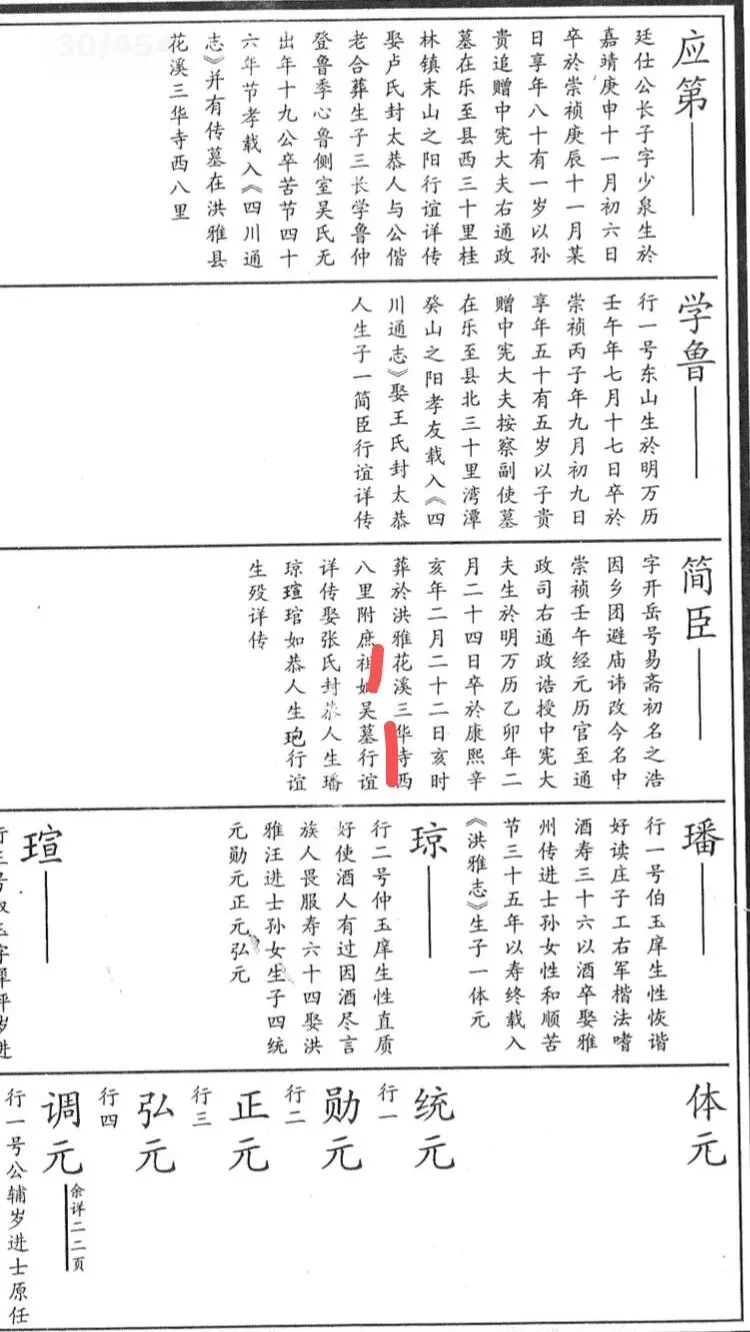 30/454
应第
廷仕公长子字少泉生於
嘉靖庚申十一月初六日
卒於崇祯庚辰十一月某
日享年八十有一岁以孙
贵追赠中宪大夫右通政
墓在乐至县西三十里桂
林镇末山之阳行谊详传
娶卢氏封太恭人与公偕
老合葬生子三长学鲁仲
登鲁季心鲁侧室吴氏无
出年十九公卒苦节四十
六年节孝载入《四川通
志》并有传墓在洪雅县
花溪三华寺西八里
学鲁
行一号东山生於明万历
壬午年七月十七日卒於
崇祯丙子年九月初九日
享年五十有五岁以子贵
赠中宪大夫按察副使墓
在乐至县北三十里湾潭
癸山之阳孝友载入《四
川通志》娶王氏封太恭
人生子一简臣行谊详传
简臣
字开岳号易斋初名之浩
因乡团避庙讳改今名中
崇祯壬午经元历官至通
政司右通政诰授中宪大
夫生於明万历乙卯年二
月二十四日卒於康熙辛
亥年二月二十二日亥时
葬於洪雅花溪三华寺西
八里附庶祖吴墓行谊
详传娶张氏封恭人生璠
琼瑄琯如恭人生玸行谊
生殁详传
璠
行一号伯玉庠生性恢谐
好读庄子工右军楷法嗜
酒寿三十六以酒卒娶雅
州传进士孙女性和顺苦
节三十五年以寿终载入
《洪雅志》生子一体元
琼
行二号仲玉庠生性直质
好使酒人有过因酒尽言
族人畏服寿六十四娶洪
雅汪进士孙女生子四统
元勋元正元弘元
瑄
体元
统元
行一
勋元
行二
正元
行三
弘元
行四
调元
余详二二页
行一号公辅岁进士原任